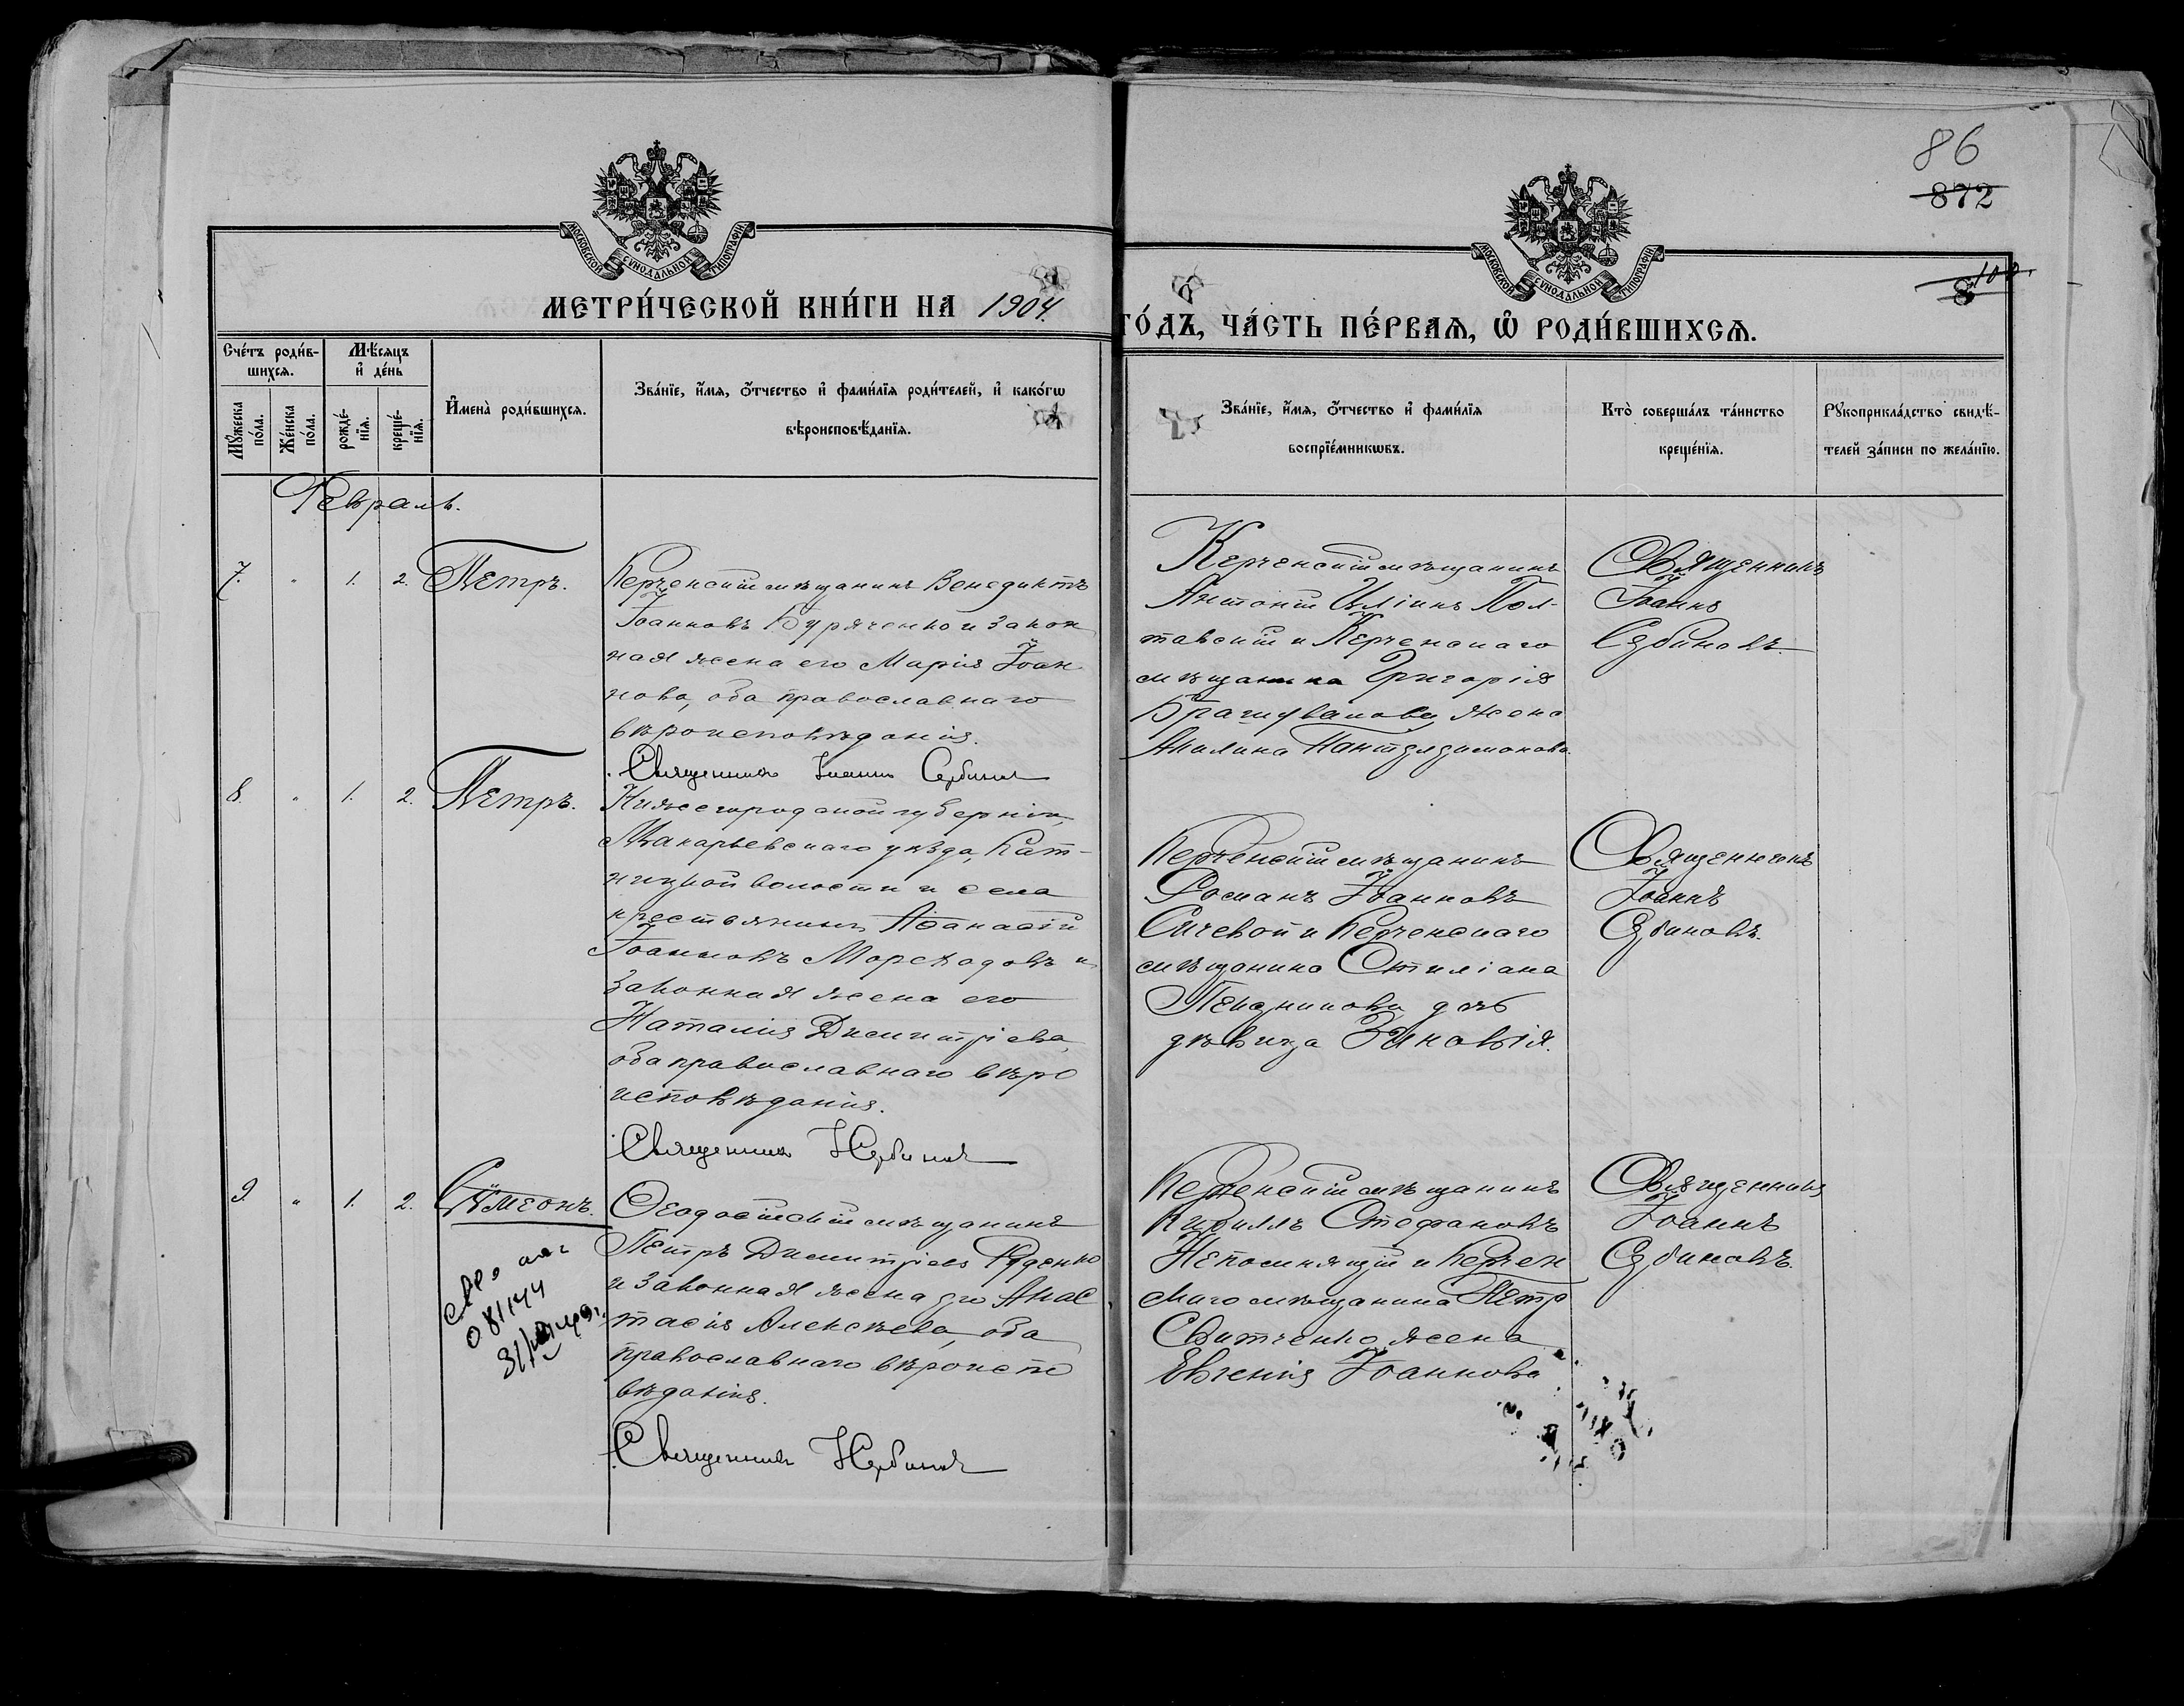 86
872
МОСКОВСКОЙ СѴНОДАЛЬНОЙ ТИПОГРАФІИ
МОСКОВСКОЙ СѴНОДАЛЬНОЙ ТИПОГРАФІИ
МЕТРИ́ЧЕСКОЙ КНИ́ГИ НА 1904.
ГО́ДЪ, ЧА́СТЬ ПЕ́РВАѦ, Ѡ҆ РОДИ́ВШИХСѦ.
Сче́тъ роди́в-
шихсѧ.
Мꙋ́жеска по́ла.
Же́нска по́ла.
Мѣ́сѧцъ
и҆ де́нь
рожде́-
нїѧ.
креще́-
нїѧ.
И҆мена̀ роди́вшихсѧ.
Зва́нїе, и҆́мѧ, ѻ҆́тчество и҆ фами́лїѧ роди́телей, и҆ како́гѡ
вѣроисповѣ́данїѧ.
Зва́нїе, и҆́мѧ, ѻ҆́тчество и҆ фами́лїѧ
воспрїе́мникѡвъ.
Кто̀ соверша́лъ та́инство
креще́нїѧ.
Рꙋкоприкла́дство свидѣ́-
телей за́писи по жела́нїю.
Февраль.
7. " 1. 2. Петръ.
Керченскій мѣщанинъ Венедиктъ
Іоанновъ Буряченко и закон
ная жена его Марія Іоан
нова, оба православнаго
вѣроисповѣданія.
Священникъ Іоаннъ Сербиновъ
Керченскій мѣщанинъ
Антоній Иліинъ Пол-
тавскій и Керченскаго
мѣщанина Григорія
жена
Акилина Пантелеимонова.
Священникъ
Іоаннъ
Сербиновъ.
8. " 1. 2. Петръ.
Нижегородской губерніи,
Макарьевскаго уѣзда,
волости и села
крестьянинъ Аѳанасій
Іоанновъ Мореходовъ и
законная жена его
Наталія Димитріева,
оба православнаго вѣро
исповѣданія.
Священникъ І Сербиновъ
Керченскій мѣщанинъ
Романъ Іоанновъ
Сичевой и Керченскаго
мѣщанина Стиліана
дочь
дѣвица Зиновія.
Священникъ
Іоаннъ
Сербиновъ.
9. " 1. 2. Сѵмеонъ.
081144
Ѳеодосійскій мѣщанинъ
Петръ Димитріевъ Руденко
и законная жена его Анас
тасія Алексѣева, оба
православнаго вѣроиспо
вѣданія.
Священникъ І Сербиновъ
Керченскій мѣщанинъ
Кириллъ Стефановъ
Непомнящій и Керчен
скаго мѣщанина Петра
Свитченко жена
Евгенія Іоаннова
Священникъ
Іоаннъ
Сербиновъ.